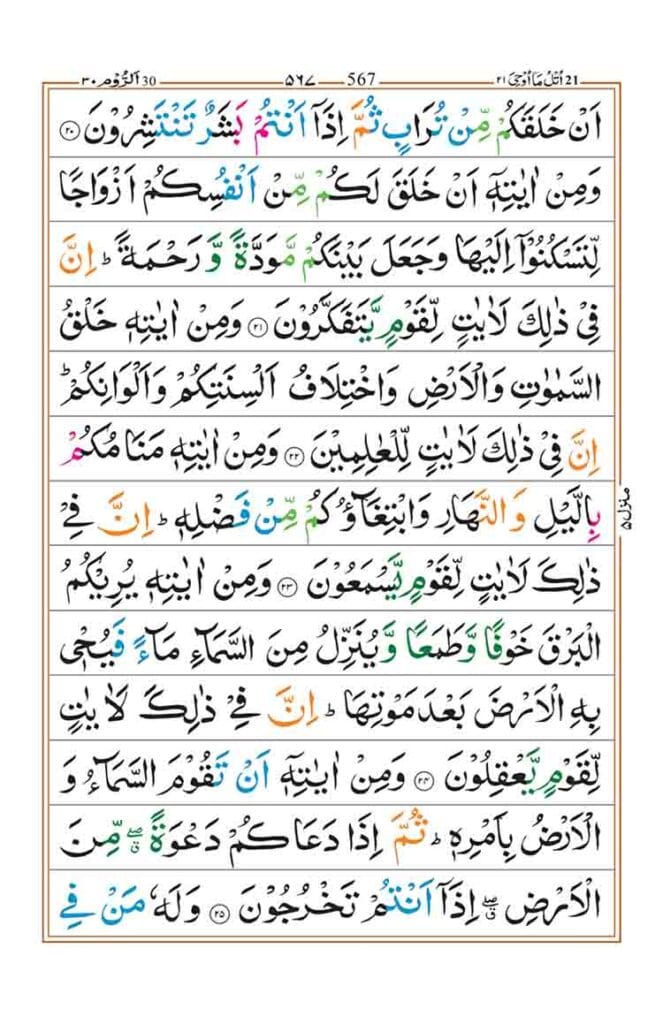 اُتْلُ مَاۤ اُوْحِیَ ۲۱ 21 567 ۵۶۷ 30 اَلرُّوْم ۳۰
اَنْ خَلَقَكُمْ مِّنْ تُرَابٍ ثُمَّ اِذَاۤ اَنْتُمْ بَشَرٌ تَنْتَشِرُوْنَ ۟۲۰
وَمِنْ اٰیٰتِهٖۤ اَنْ خَلَقَ لَكُمْ مِّنْ اَنْفُسِكُمْ اَزْوَاجًا
لِّتَسْكُنُوْۤا اِلَیْهَا وَجَعَلَ بَیْنَكُمْ مَّوَدَّةً وَّ رَحْمَةً ؕ اِنَّ
فِیْ ذٰلِكَ لَاٰیٰتٍ لِّقَوْمٍ یَّتَفَكَّرُوْنَ ۟۲۱ وَمِنْ اٰیٰتِهٖ خَلْقُ
السَّمٰوٰتِ وَالْاَرْضِ وَاخْتِلَافُ اَلْسِنَتِكُمْ وَاَلْوَانِكُمْ ؕ
اِنَّ فِیْ ذٰلِكَ لَاٰیٰتٍ لِّلْعٰلِمِیْنَ ۟۲۲ وَمِنْ اٰیٰتِهٖ مَنَامُكُمْ
بِالَّیْلِ وَالنَّهَارِ وَابْتِغَآؤُكُمْ مِّنْ فَضْلِهٖ ؕ اِنَّ فِیْ
ذٰلِكَ لَاٰیٰتٍ لِّقَوْمٍ یَّسْمَعُوْنَ ۟۲۳ وَمِنْ اٰیٰتِهٖ یُرِیْكُمُ
الْبَرْقَ خَوْفًا وَّطَمَعًا وَّیُنَزِّلُ مِنَ السَّمَآءِ مَآءً فَیُحْیٖ
بِهِ الْاَرْضَ بَعْدَ مَوْتِهَا ؕ اِنَّ فِیْ ذٰلِكَ لَاٰیٰتٍ
لِّقَوْمٍ یَّعْقِلُوْنَ ۟۲۴ وَمِنْ اٰیٰتِهٖۤ اَنْ تَقُوْمَ السَّمَآءُ وَ
الْاَرْضُ بِاَمْرِهٖ ؕ ثُمَّ اِذَا دَعَاكُمْ دَعْوَةً ۖۗ مِّنَ
الْاَرْضِ ۖۗ اِذَاۤ اَنْتُمْ تَخْرُجُوْنَ ۟۲۵ وَلَهٗ مَنْ فِی
منزل ۵